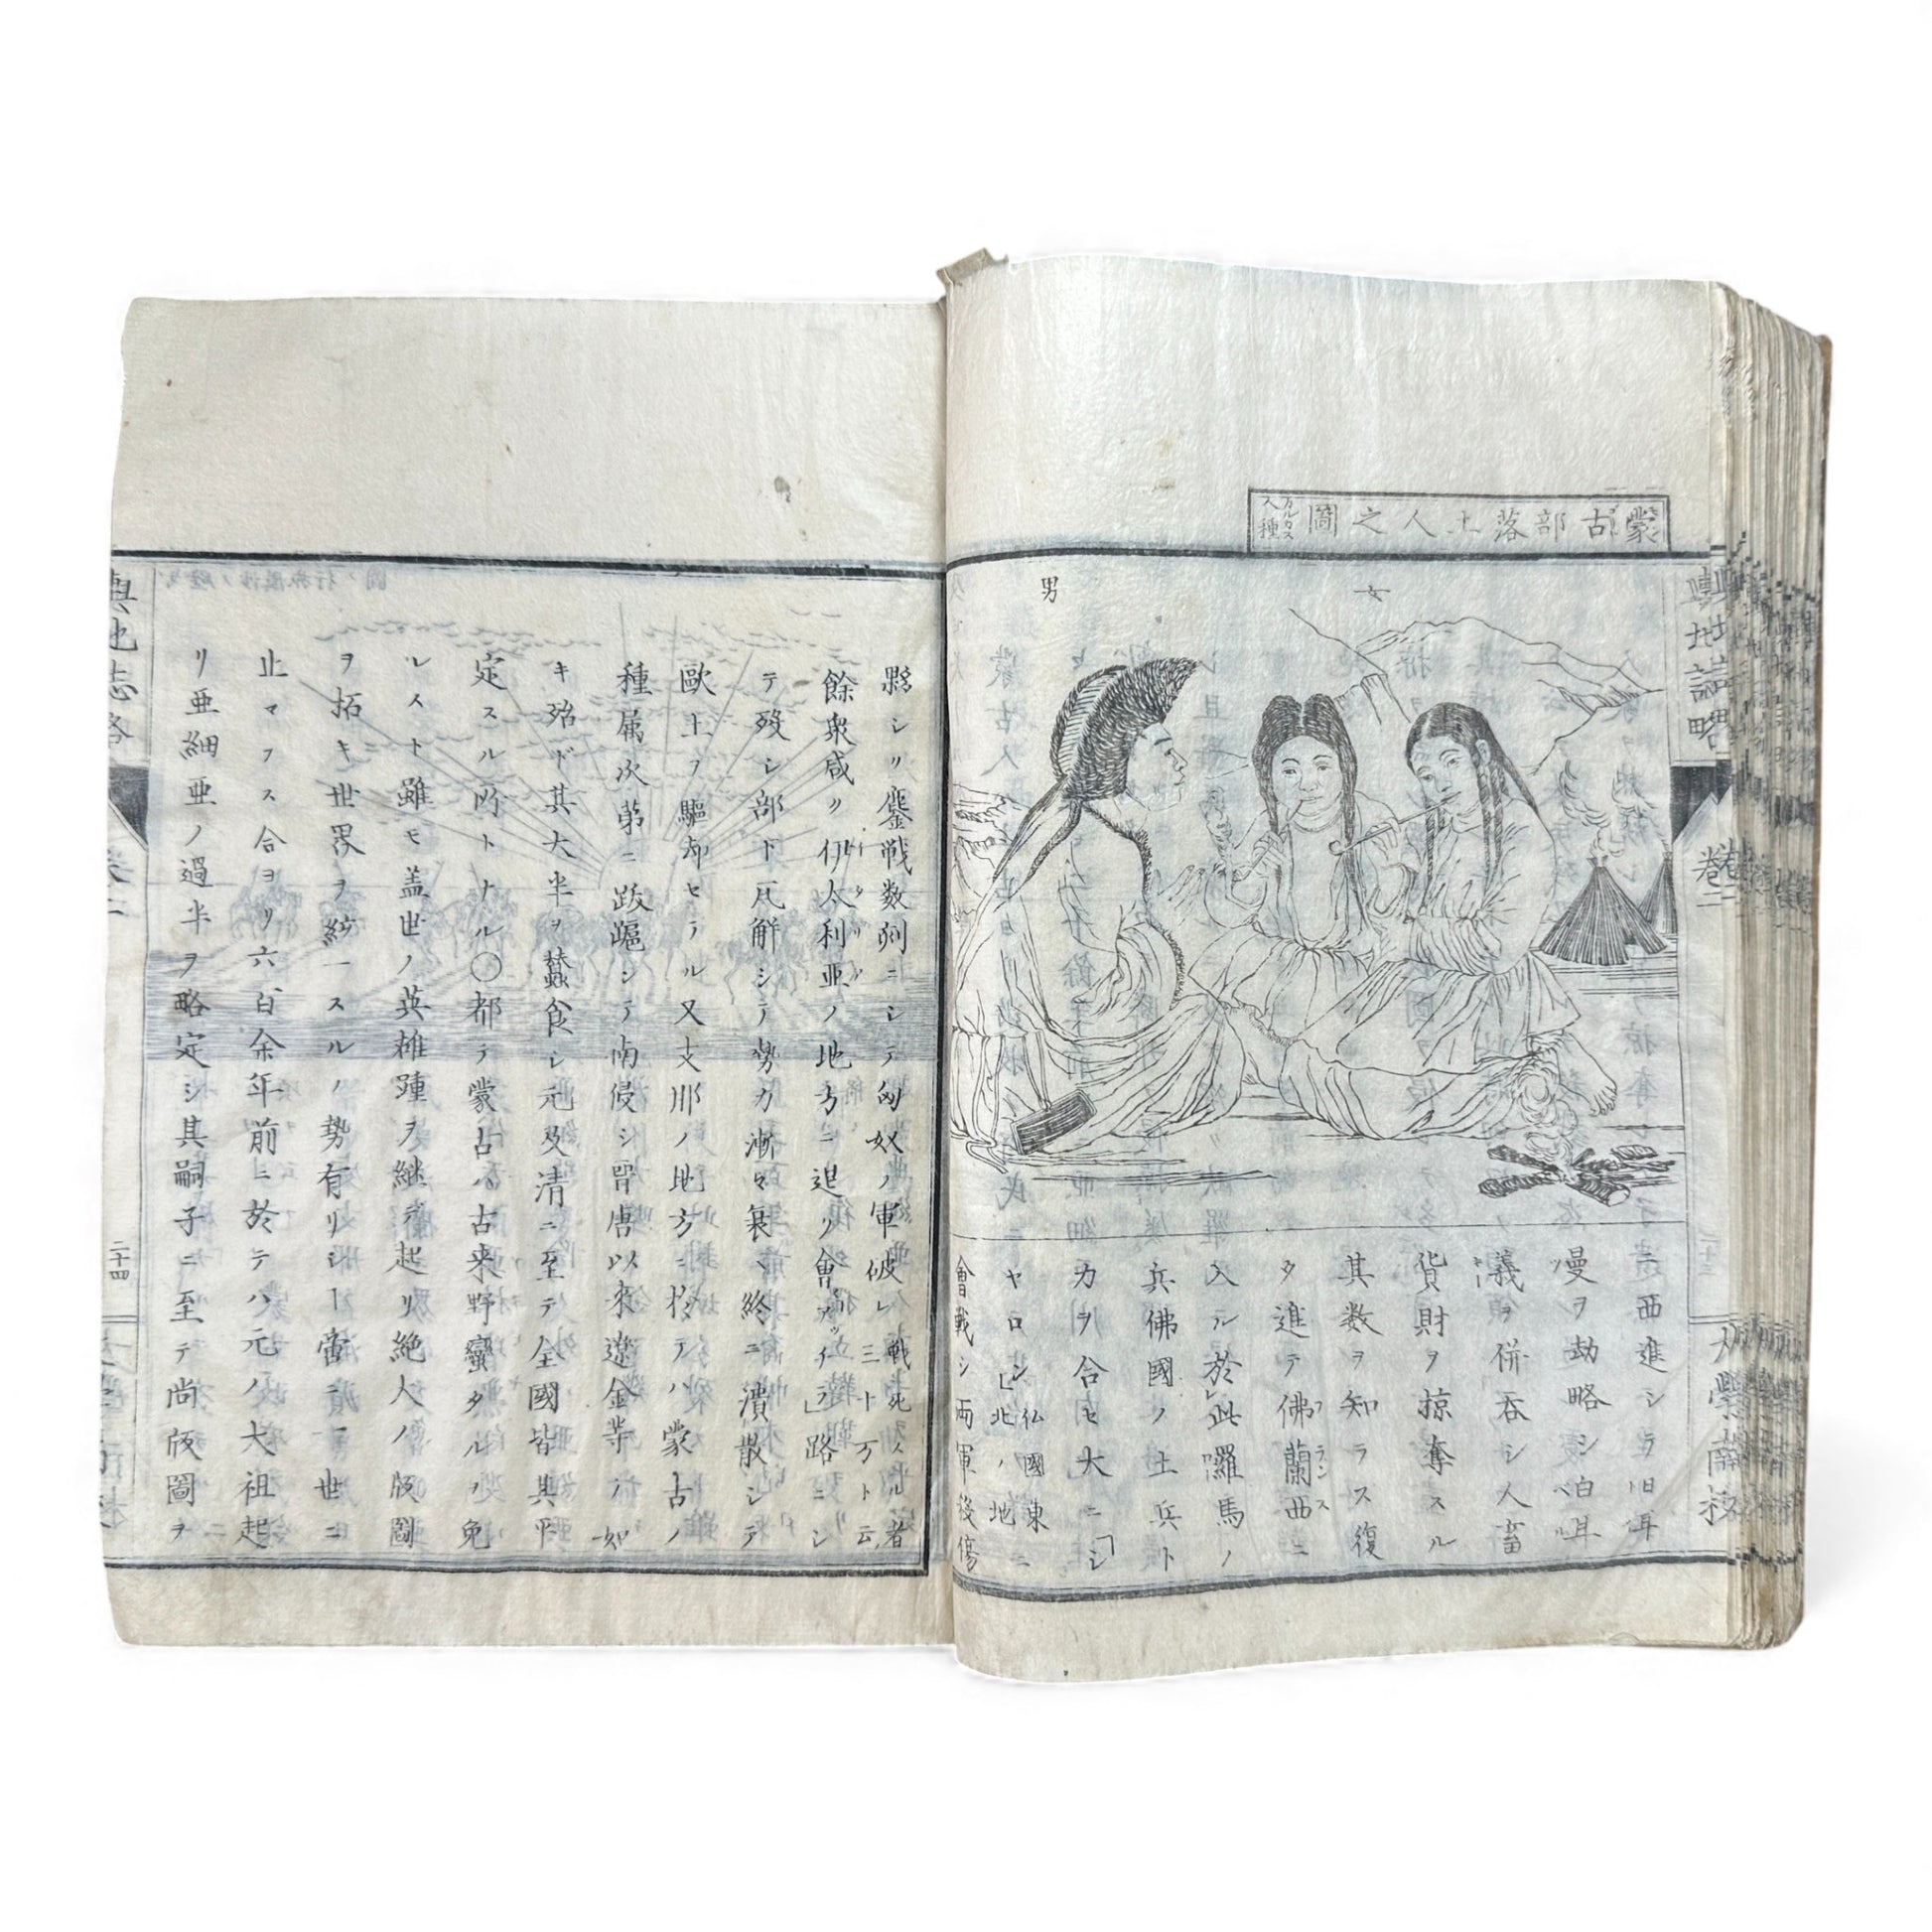 蒙古部落土人之圖
カルカス
人種
女
男
ニ西進シラ旧耳
曼ヲ劫略シ白耳
義ヲ併吞シ人畜
貨財ヲ掠奪スル
其数ヲ知ラス復
タ進テ佛蘭西ニ
フランス
入ル於此囉馬ノ
兵佛國ノ土兵ト
力ヲ合セ大ニ「シ
ヤロシ
仏國東
北ノ地
ニ
會戦シ両軍殺傷
輿地誌略
卷二
大學南校
縣シリ鏖戦数刻ニシテ匈奴ノ軍破レ
戦死スル者
三十万ト云
餘衆咸ク伊太利亜ノ地方ニ退ク會アッチラ」路ニシ
イタリヤ
テ歿シ部下瓦解シテ勢力漸々衰ヘ終ニ潰散シテ
歐土ヲ驅却セラル又支那ノ地方ニ於テハ蒙古ノ
種属次第ニ跋躡シテ南侵シ晋唐以来遼金等ノ如
キ殆ド其大半ヲ蠶食シ元及清ニ至テ全國皆其平
定スル所トナル○都テ蒙古ハ古来野蠻タルヲ免
レスト雖モ蓋世ノ英雄踵ヲ継テ起リ絶大ノ版圖
ヲ拓キ世界ヲ統一スルノ勢有リシ一啻ニ一世ニ
止マラス今ヨリ六百余年前ニ於テハ元ノ大祖起
リ亜細亜ノ過半ヲ略定シ其嗣子ニ至テ尚版圖ヲ
輿地志略
卷二
二十四